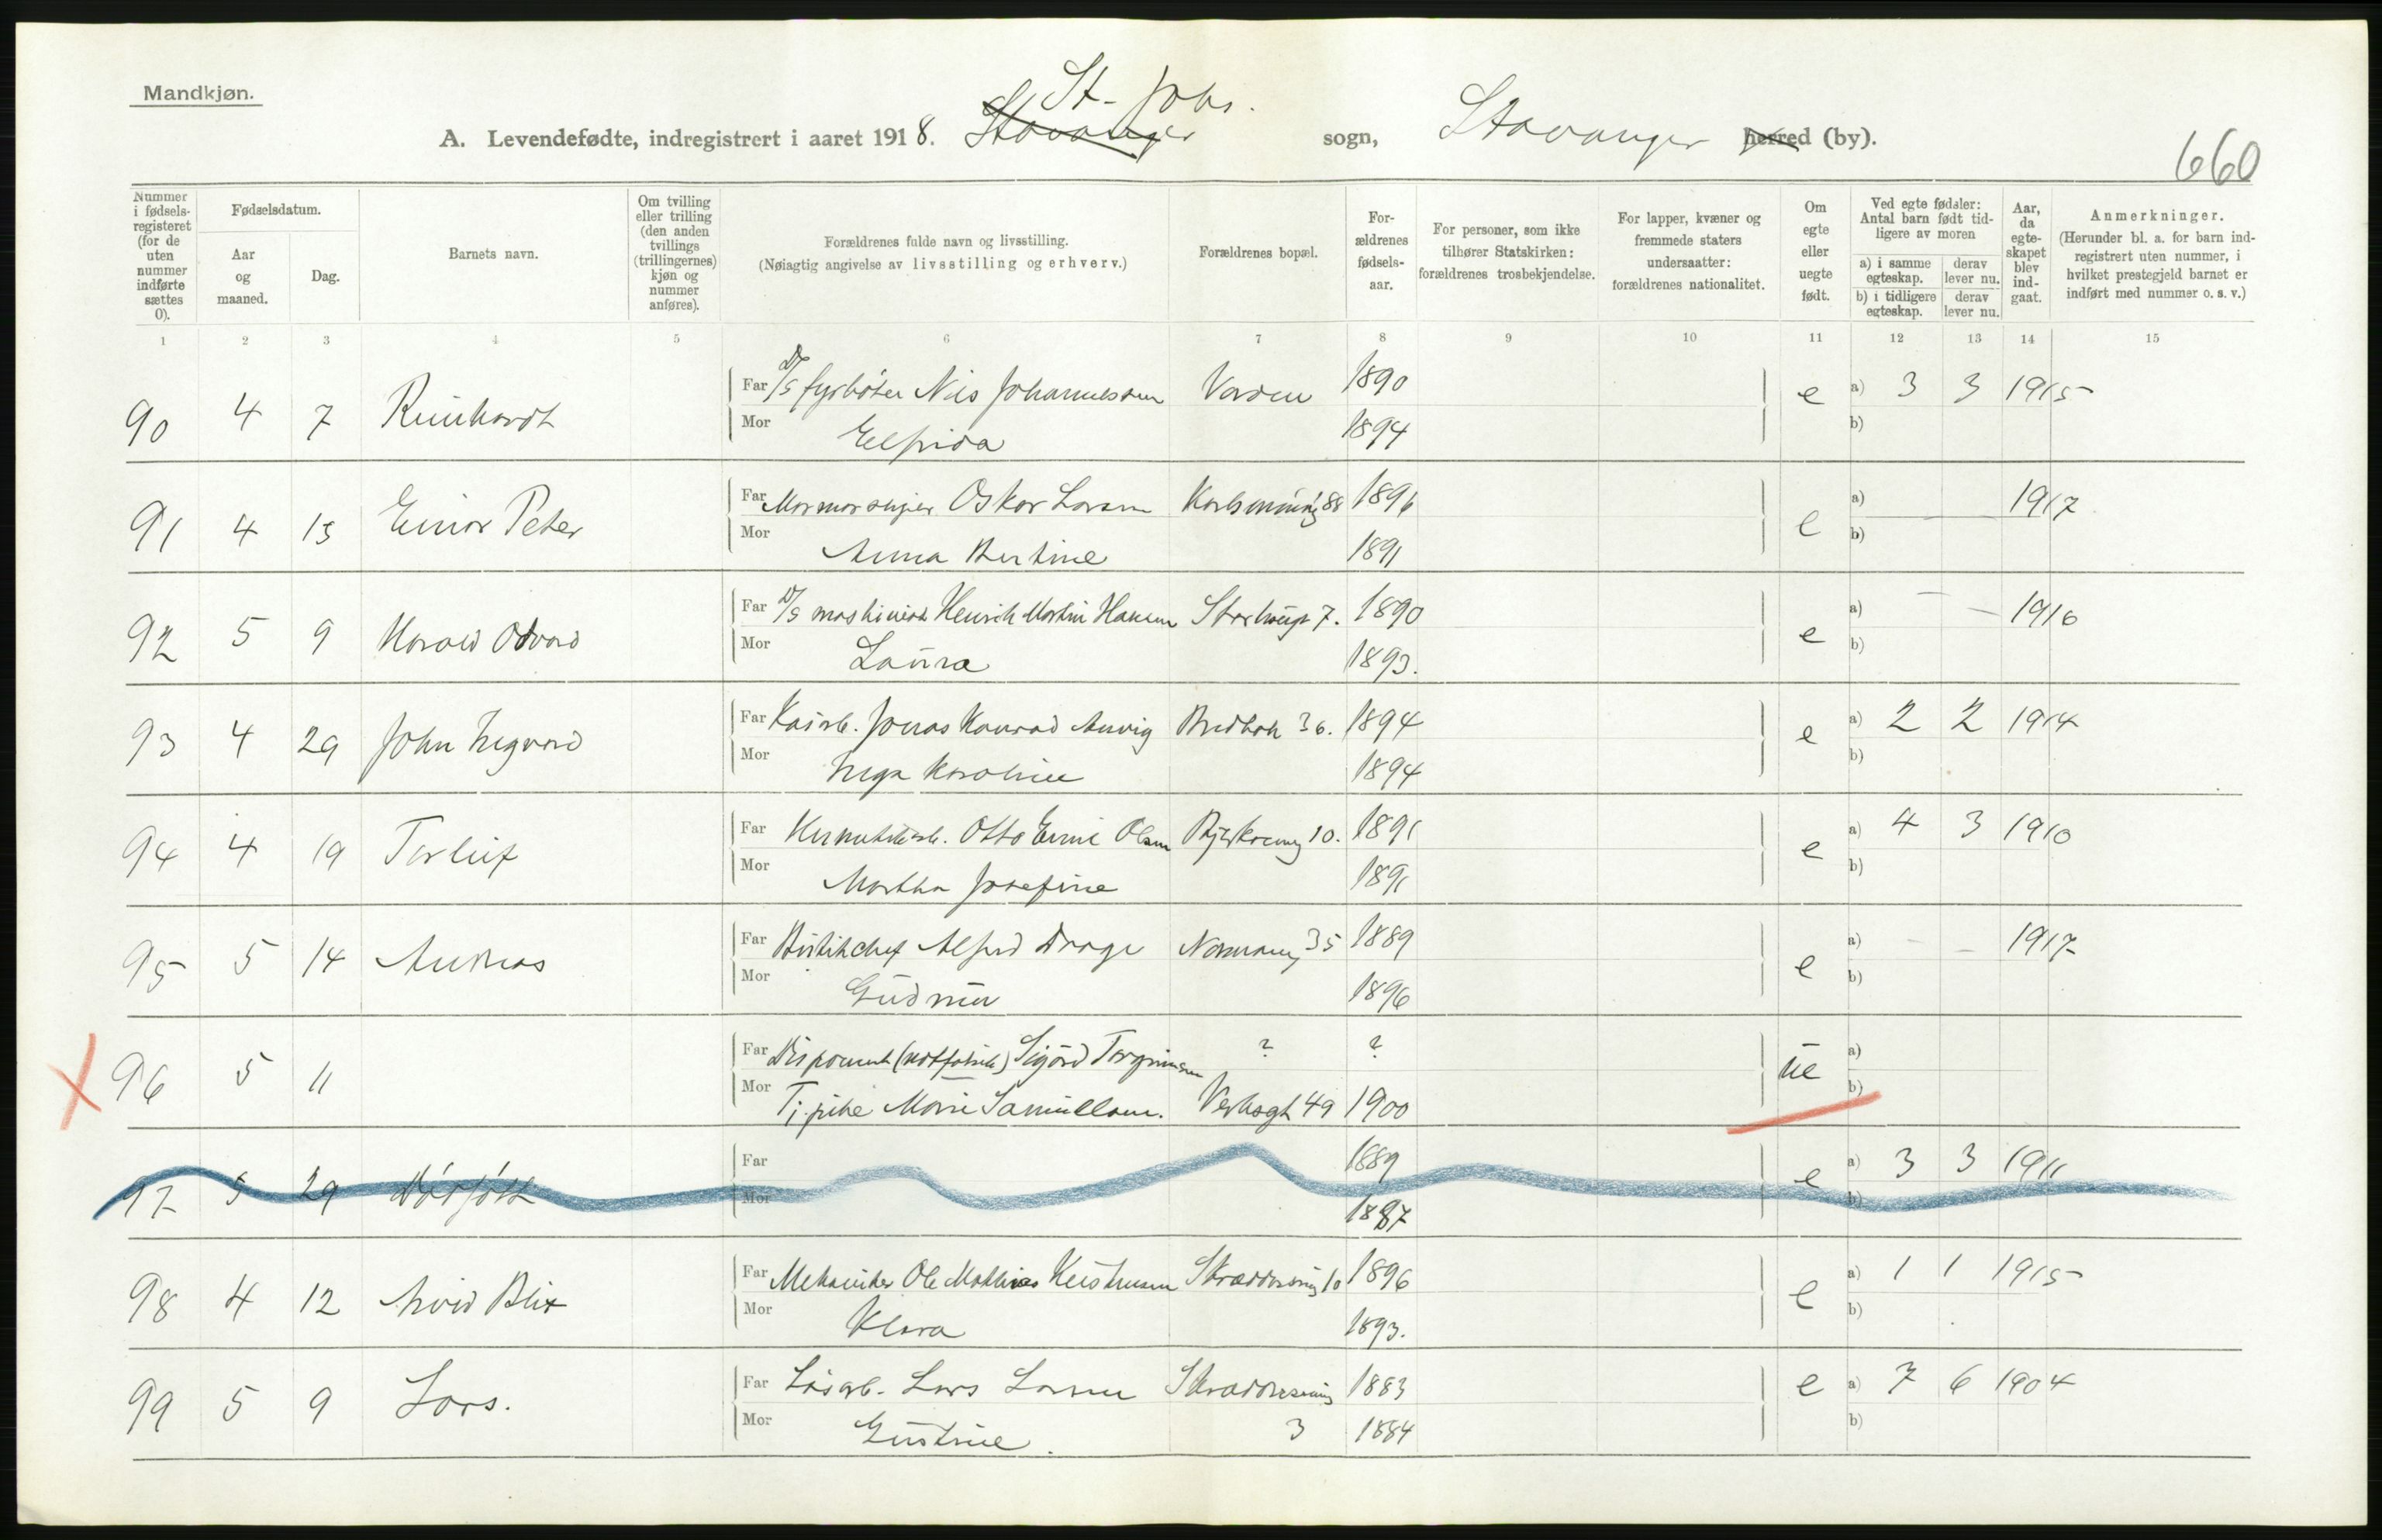 Mandkjøn.
St. Johs.
A. Levendefødte, indregistrert i aaret 1918. Stavanger sogn, Stavanger herred (by).
660
Nummer i fødsels-registeret (for de uten nummer indførte sættes 0).
Fødselsdatum.
Aar og maaned.
Dag.
Barnets navn.
Om tvilling eller trilling (den anden tvillings (trillingernes) kjøn og nummer anføres).
Forældrenes fulde navn og livsstilling.
(Nøiagtig angivelse av livsstilling og erhverv.)
Forældrenes bopæl.
For-ældrenes fødsels-aar.
For personer, som ikke tilhører Statskirken: forældrenes trosbekjendelse.
For lapper, kvæner og fremmede staters undersaatter: forældrenes nationalitet.
Om egte eller uegte født.
Ved egte fødsler: Antal barn født tid-ligere av moren
a) i samme egteskap.
derav lever nu.
b) i tidligere egteskap.
derav lever nu.
Aar, da egte-skapet blev ind-gaat.
Anmerkninger.
(Herunder bl. a. for barn ind-registrert uten nummer, i hvilket prestegjeld barnet er indført med nummer o. s. v.)
1 2 3 4 5 6 7 8 9 10 11 12 13 14 15
90 4 7 Reinhardt Far D/S fyrbøter Nils Johannessen Varden 1890 e a) 3 3 1915
Mor Elfrida 1894 b)
91 4 13 Einar Peter Far Marmorsliper Oskar Larsen 88 1896 e a) 1917
Mor Anna Bertine 1891 b)
92 5 9 Harald Odvard Far D/S maskinist Henrik Martin Hansen Storhaugv 7. 1890 e a) - - 1916
Mor Laura 1893. b)
93 4 29 John Ingvard Far Kaiarb. Jonas Konrad Anvig Bredbak 36. 1894 e a) 2 2 1914
Mor Inga Karoline 1894 b)
94 4 19 Torleif Far Hermetikarb. Otto Emil Olsen 10. 1891 e a) 4 3 1910
Mor Martha Josefine 1891 b)
95 5 14 Andreas Far Butikchef Alfred Drage 35 1889 e a) - - 1917
Mor Gudrun 1896 b)
96 5 11 Far Disponent Sigurd Torgrimsen ? ? ue a)
Mor Tj.pike Marie Samuelsen. Verksgt 49 1900 b)
97 5 29 Dødfødt Far 1889 e a) 3 3 1911
Mor 1887 b)
98 4 12 Arvid Blix Far Mekaniker Ole Mathias Kristensen 10 1896 e a) 1 1 1915
Mor Klara 1893. b)
99 5 9 Lars. Far Løsarb. Lars Larsen 1883 e a) 7 6 1904
Mor Gustine. 3 1884 b)